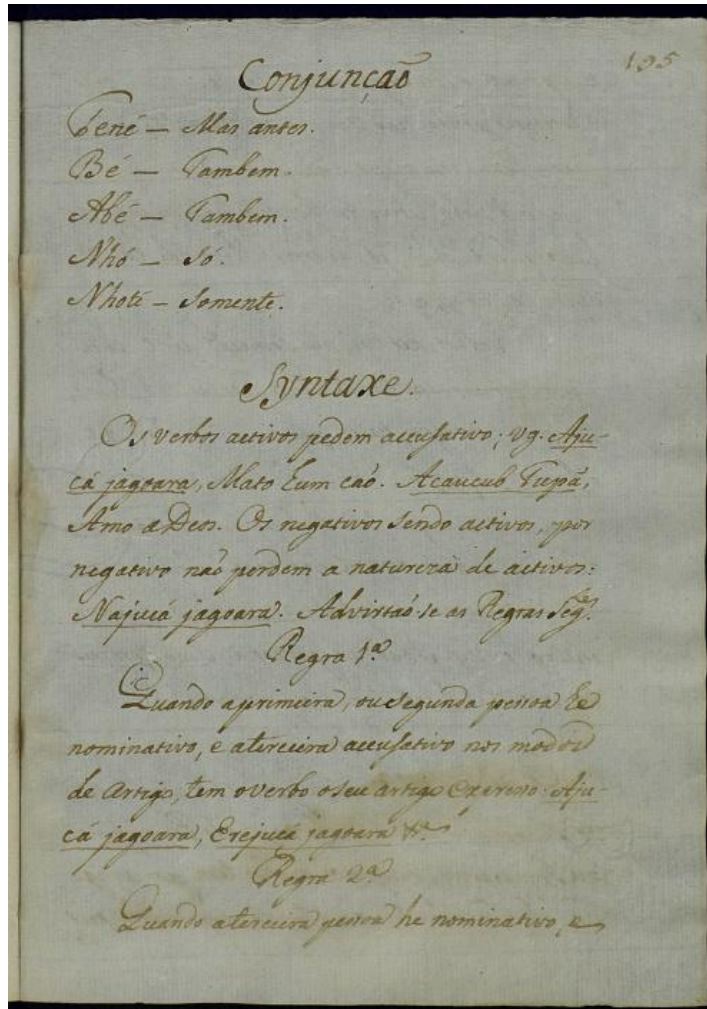 195
Conjunção
Tené — Mas antes.
Bé — Tambem.
Abé — Tambem.
Nhó — só.
Nhoté — somente.
Syntaxe.
Os verbos activos pedem accusativo; vg. Aju-
cá jagoara, Mato hum caõ. Açauçub Tupá,
Amo a Deos. Os negativos sendo activos, por
negativo naõ perdem a natureza de activos:
Najucá jagoara. Advirtaõ-se as Regras seg.tes
Regra 1ª
Quando a primeira, ou segunda pessoa he
nominativo, e a terceira accusativo nos modos
de artigo, tem o verbo o seu artigo expresso. Aju-
cá jagoara, Erejucá jagoara &ª
Regra 2ª
Quando a terceira pessoa he nominativo, e